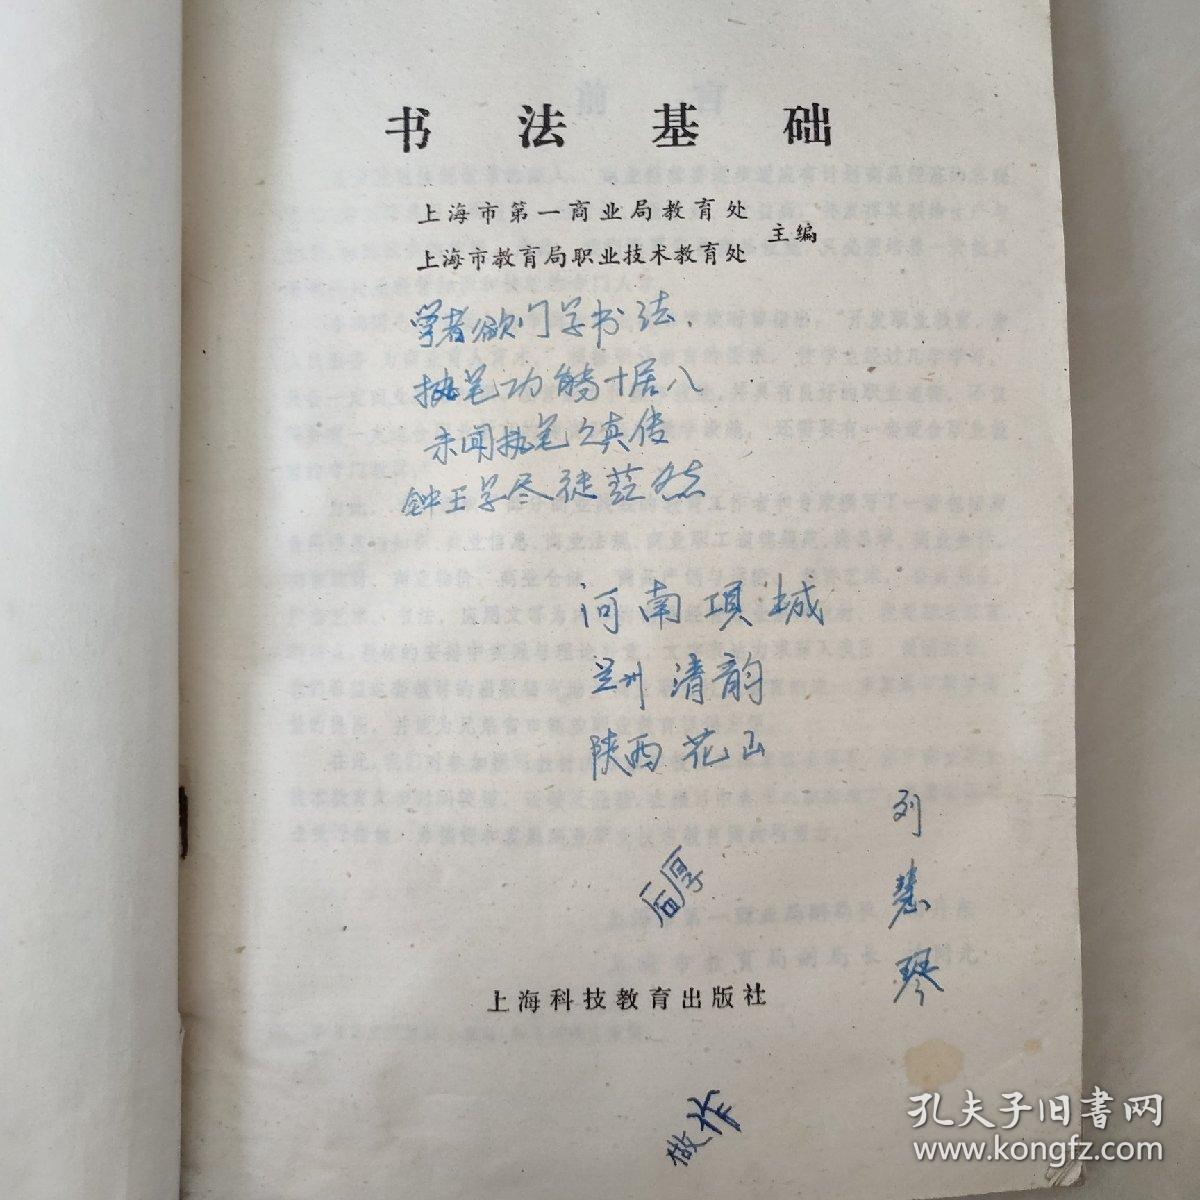 书法基础
上海市第一商业局教育处
上海市教育局职业技术教育处
主编
学者欲问学书法
执笔功能十居八
未闻执笔之真传
钟王学尽徒茫然
河南项城
兰州清韵
陕西花山
列慧琴
后厚
上海科技教育出版社
做作
孔夫子旧书网
www.kongfz.com